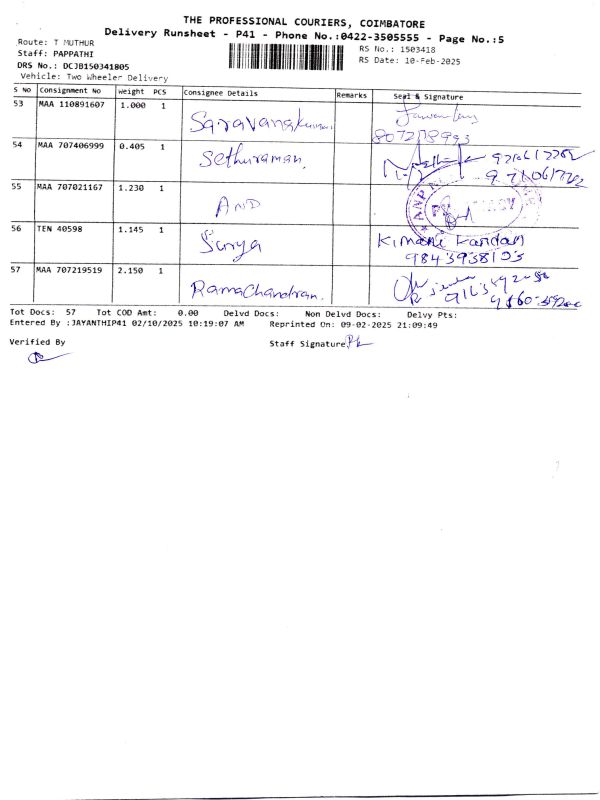 THE PROFESSIONAL COURIERS, COIMBATORE
Delivery Runsheet - P41 - Phone No.:0422-3505555 - Page No.:5
Route: T MUTHUR
RS No.: 1503418
Staff: PAPPATHI
RS Date: 10-Feb-2025
DRS No.: DCJB150341805
Vehicle: Two Wheeler Delivery
S No Consignment No Weight PCS Consignee Details Remarks Seal & Signature
53 MAA 110891607 1.000 1 Saravanakumar.
54 MAA 707406999 0.405 1 Sethuraman.
55 MAA 707021167 1.230 1 AND
56 TEN 40598 1.145 1 Surya
57 MAA 707219519 2.150 1 RamaChandran.
Tot Docs: 57 Tot COD Amt: 0.00 Delvd Docs: Non Delvd Docs: Delvy Pts:
Entered By :JAYANTHIP41 02/10/2025 10:19:07 AM Reprinted On: 09-02-2025 21:09:49
Verified By
Staff Signature